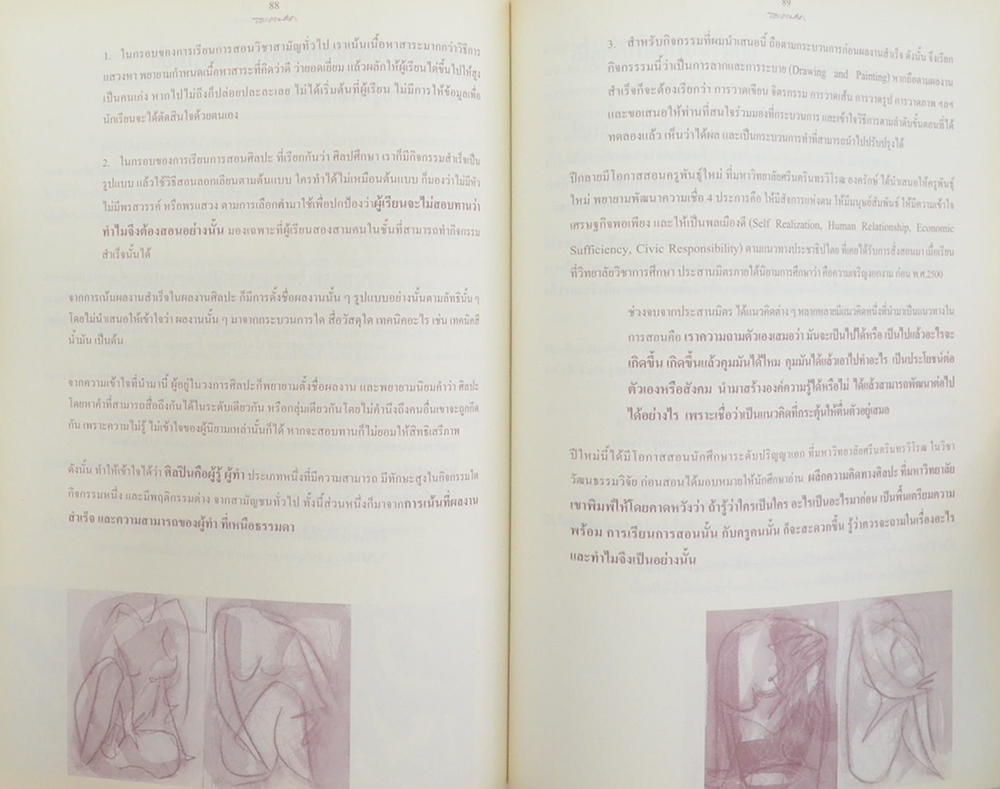 88
1. ในกรอบของการเรียนการสอนวิชาสามัญทั่วไป เราเน้นเนื้อหาสาระมากกว่าวิธีการ
แสวงหา พยายามกำหนดเนื้อหาสาระที่คิดว่าดี ว่ายอดเยี่ยม แล้วผลักให้ผู้เรียนไต่ขึ้นไปให้สูง
เป็นคนเก่ง หากไปไม่ถึงก็ปล่อยปละละเลย ไม่ได้เริ่มต้นที่ผู้เรียน ไม่มีการให้ข้อมูลเพื่อ
นักเรียนจะได้ตัดสินใจด้วยตนเอง
2. ในกรอบของการเรียนการสอนศิลปะ ที่เรียกกันว่า ศิลปศึกษา เราก็มีกิจกรรมสำเร็จเป็น
รูปแบบ แล้วใช้วิธีสอนลอกเลียนตามต้นแบบ ใครทำได้ไม่เหมือนต้นแบบ ก็มองว่าไม่มีหัว
ไม่มีพรสวรรค์ หรือพรแสวง ตามการเลือกคำมาใช้เพื่อปกป้องว่าผู้เรียนจะไม่สอบทานว่า
ทำไมจึงต้องสอนอย่างนั้น มองเฉพาะที่ผู้เรียนสองสามคนในชั้นที่สามารถทำกิจกรรม
สำเร็จนั้นได้
จากการเน้นผลงานสำเร็จในผลงานศิลปะ ก็มีการตั้งชื่อผลงานนั้น ๆ รูปแบบอย่างนั้นตามลัทธินั้น ๆ
โดยไม่นำเสนอให้เข้าใจว่า ผลงานนั้น ๆ มาจากกระบวนการใด สื่อวัสดุใด เทคนิคอะไร เช่น เทคนิคสี
น้ำมัน เป็นต้น
จากความเข้าใจที่นำมานี้ ผู้อยู่ในวงการศิลปะก็พยายามตั้งชื่อผลงาน และพยายามนิยมคำว่า ศิลปะ
โดยหาคำที่สามารถสื่อถึงกันได้ในระดับเดียวกัน หรือกลุ่มเดียวกันโดยไม่คำนึงถึงคนอื่นเขาจะถูกกีด
กัน เพราะความไม่รู้ ไม่เข้าใจของผู้นิยามเหล่านั้นก็ได้ หากจะสอบทานก็ไม่ยอมให้สิทธิเสรีภาพ
ดังนั้น ทำให้เข้าใจได้ว่า ศิลปินคือผู้รู้ ผู้ทำ ประเภทหนึ่งที่มีความสามารถ มีทักษะสูงในกิจกรรมใด
กิจกรรมหนึ่ง และมีพฤติกรรมต่าง จากสามัญชนทั่วไป ทั้งนี้ส่วนหนึ่งก็มาจากการเน้นที่ผลงาน
สำเร็จ และความสามารถของผู้ทำ ที่เหนือธรรมดา
89
3. สำหรับกิจกรรมที่ผมนำเสนอนี้ ถือตามกระบวนการก่อนผลงานสำเร็จ ดังนั้น จึงเรียก
กิจกรรรมนี้ว่าเป็นการลากและการระบาย (Drawing and Painting) หากถือตามผลงาน
สำเร็จก็จะต้องเรียกว่า การวาดเขียน จิตรกรรม การวาดเส้น การวาดรูป การวาดภาพ ฯลฯ
และขอเสนอให้ท่านที่สนใจร่วมมองที่กระบวนการ และเข้าใจวิธีการตามลำดับขั้นตอนที่ได้
ทดลองแล้ว เห็นว่าได้ผล และเป็นกระบวนการทำที่สามารถนำไปปรับปรุงได้
ปีกลายมีโอกาสสอนครูพันธุ์ใหม่ ที่มหาวิทยาลัยศรีนครินทรวิโรฒ องครักษ์ ได้นำเสนอให้ครูพันธุ์
ใหม่ พยายามพัฒนาความเชื่อ 4 ประการ คือ ให้มีสัจการแห่งตน ให้มีมนุษย์สัมพันธ์ ให้มีความเข้าใจ
เศรษฐกิจพอเพียง และให้เป็นพลเมืองดี (Self Realization, Human Relationship, Economic
Sufficiency, Civic Responsibility) ตามแนวทางประชาธิปไตย ที่เคยได้รับการสั่งสอนมา เมื่อเรียน
ที่วิทยาลัยวิชาการศึกษา ประสานมิตรภายใต้นิยามการศึกษาว่า คือความเจริญงอกงาม ก่อน พ.ศ.2500
ช่วงจบจากประสานมิตร ได้แนวคิดต่าง ๆ หลากหลายมีแนวคิดหนึ่งที่นำมาเป็นแนวทางใน
การสอนคือ เราควรถามตัวเองเสมอว่า มันจะเป็นไปได้หรือ เป็นไปแล้วอะไรจะ
เกิดขึ้น เกิดขึ้นแล้วคุมมันได้ไหม คุมมันได้แล้วเอาไปทำอะไร เป็นประโยชน์ต่อ
ตัวเองหรือสังคม นำมาสร้างองค์ความรู้ได้หรือไม่ ได้แล้วสามารถพัฒนาต่อไป
ได้อย่างไร เพราะเชื่อว่าเป็นแนวคิดที่กระตุ้นให้ตื่นตัวอยู่เสมอ
ปีใหม่นี้ได้มีโอกาสสอนนักศึกษาระดับปริญญาเอก ที่มหาวิทยาลัยศรีนครินทรวิโรฒ ในวิชา
วัฒนธรรมวิจัย ก่อนสอนได้มอบหมายให้นักศึกษาอ่าน ผลึกความคิดทางศิลปะ ที่มหาวิทยาลัย
เขาพิมพ์ให้โดยคาดหวังว่า ถ้ารู้ว่าใครเป็นใคร อะไรเป็นอะไรมาก่อน เป็นพื้นเตรียมความ
พร้อม การเรียนการสอนนั้น กับครูคนนั้น ก็จะสะดวกขึ้น รู้ว่าควรจะถามในเรื่องอะไร
และทำไมจึงเป็นอย่างนั้น